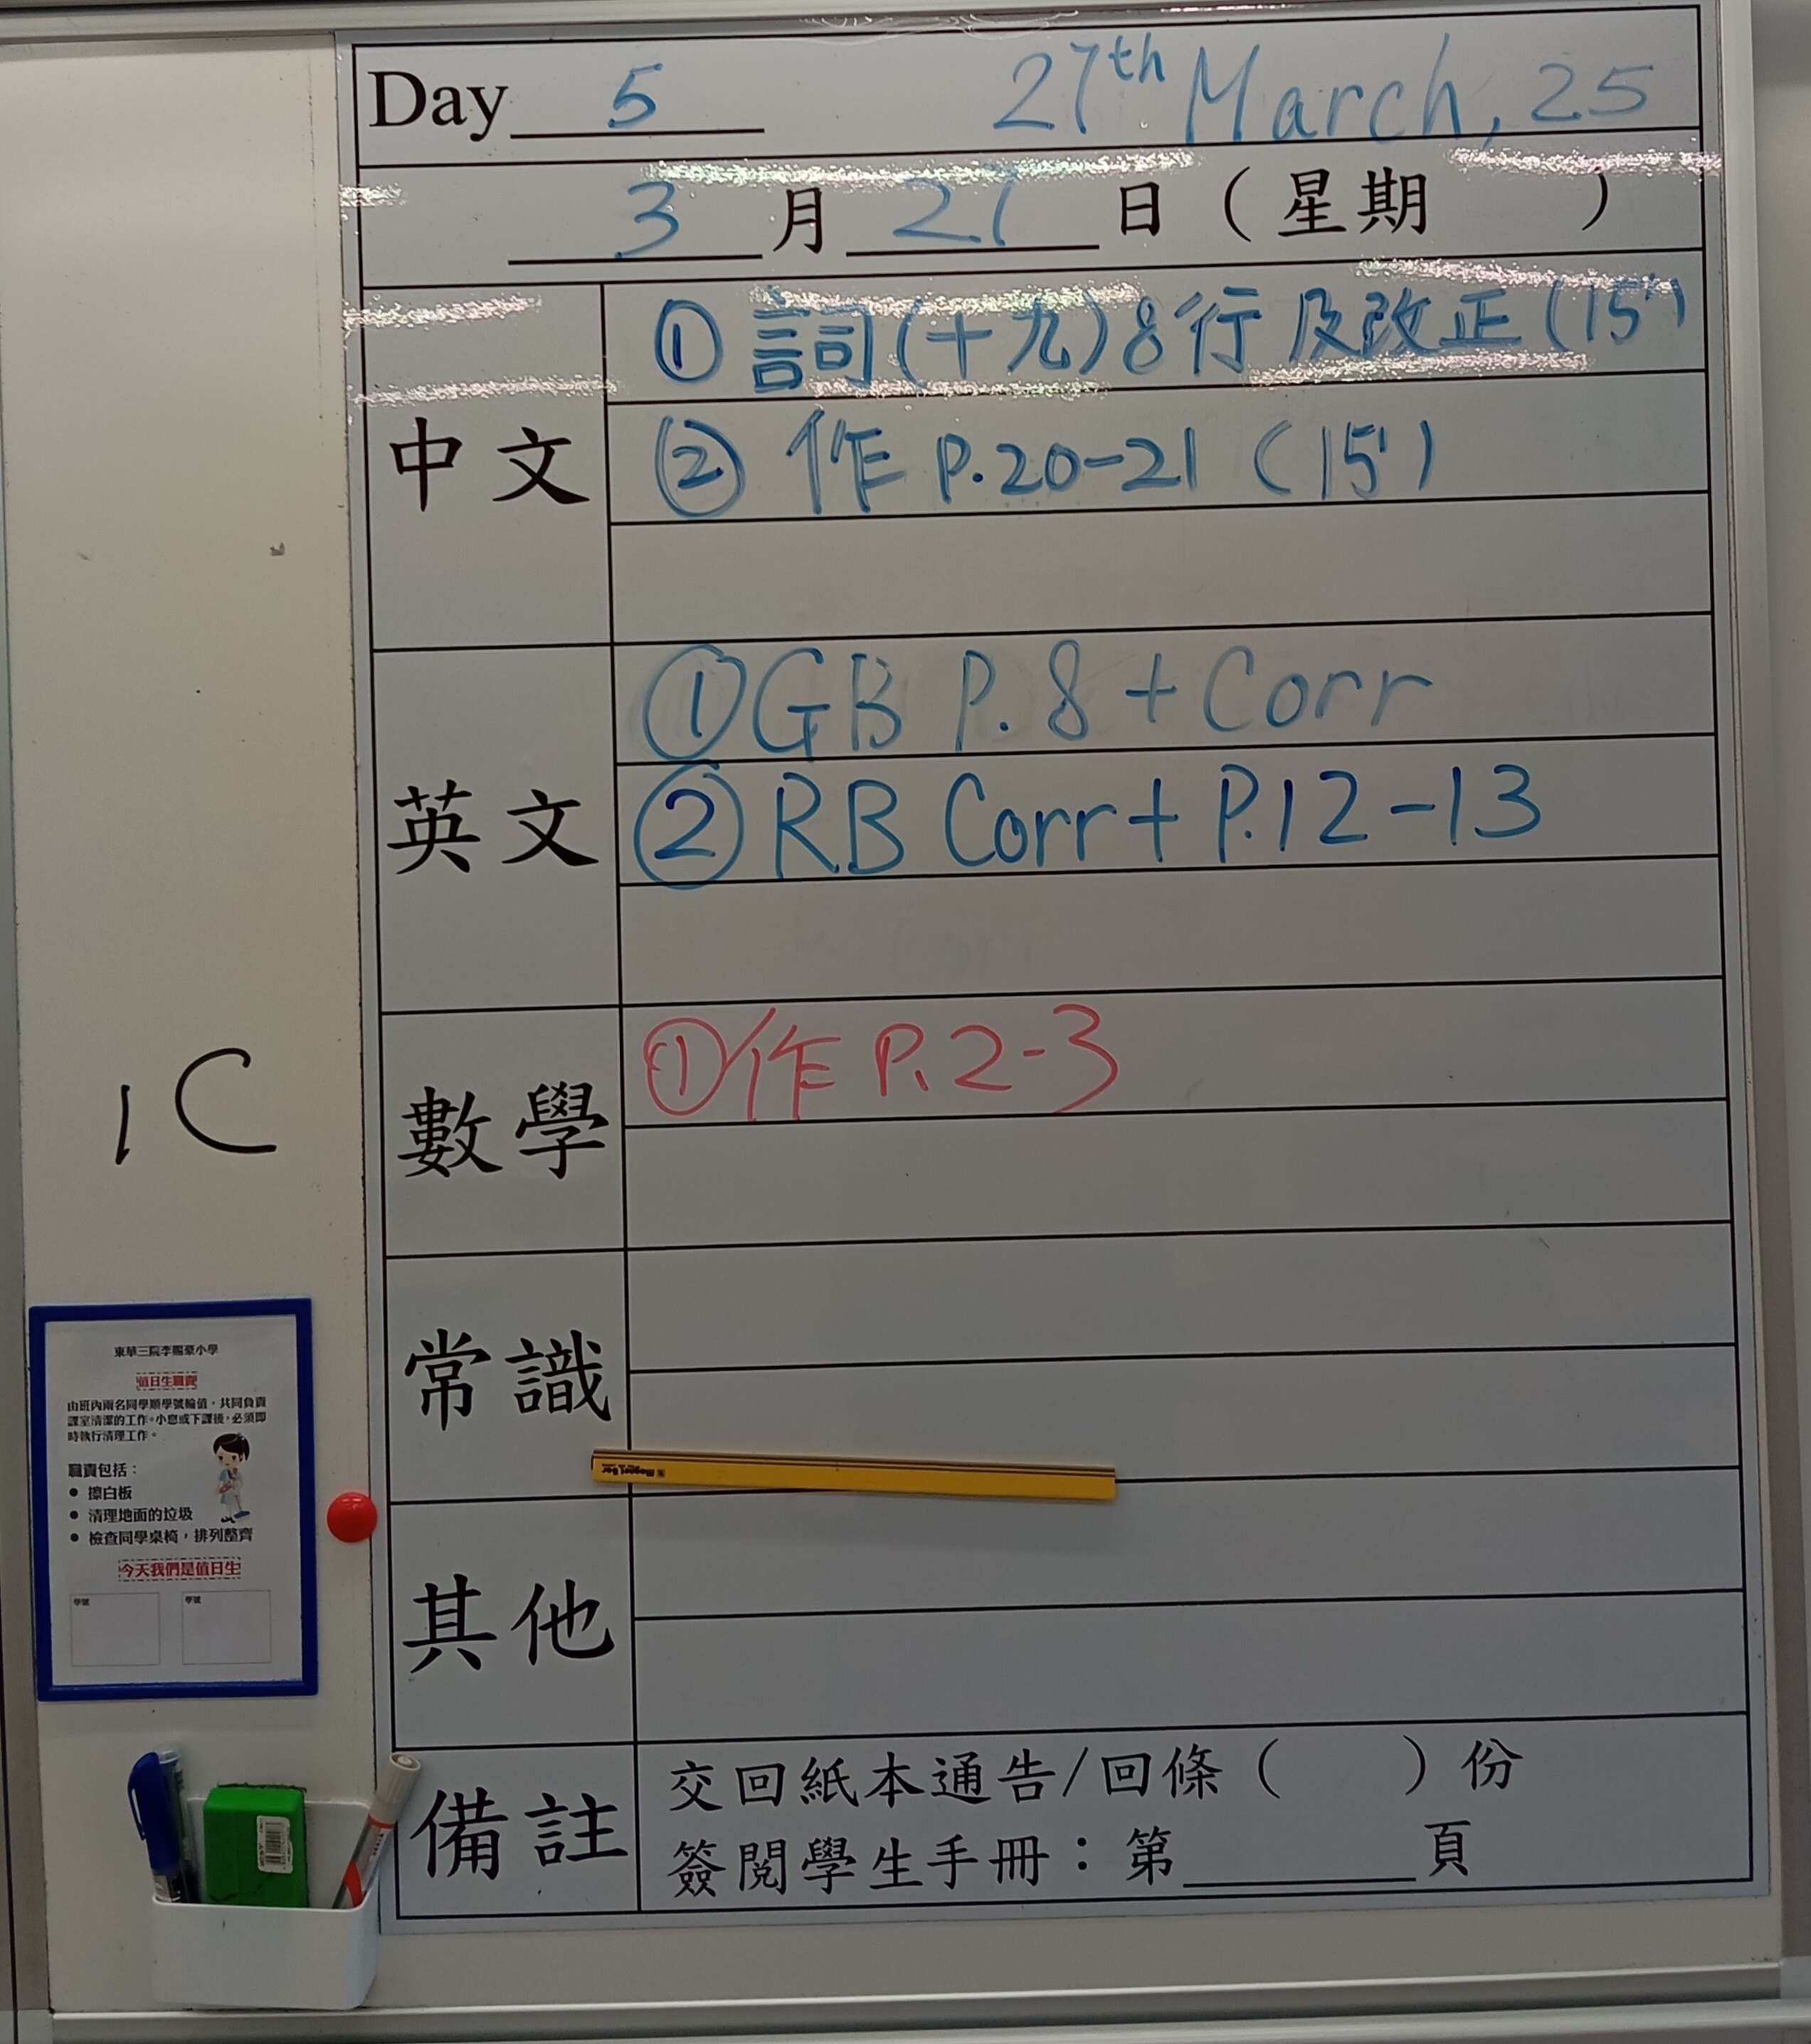 Day 5 27th March, 25
3 月 27 日 ( 星期 )
中文
① 詞(十九)8行及改正(15')
② 作 P.20-21 (15')
英文
① GB P.8 + Corr
② RB Corr + P.12-13
數學
① 作 P.2-3
常識
其他
備註
交回紙本通告/回條 ( ) 份
簽閱學生手冊：第 頁
1C
東華三院李賜豪小學
值日生職責
由班內兩名同學順學號輪值，共同負責
課室清潔的工作。小息或下課後，必須即
時執行清理工作。
職責包括：
● 擦白板
● 清理地面的垃圾
● 檢查同學桌椅，排列整齊
今天我們是值日生
學號 學號
Magnet Bar